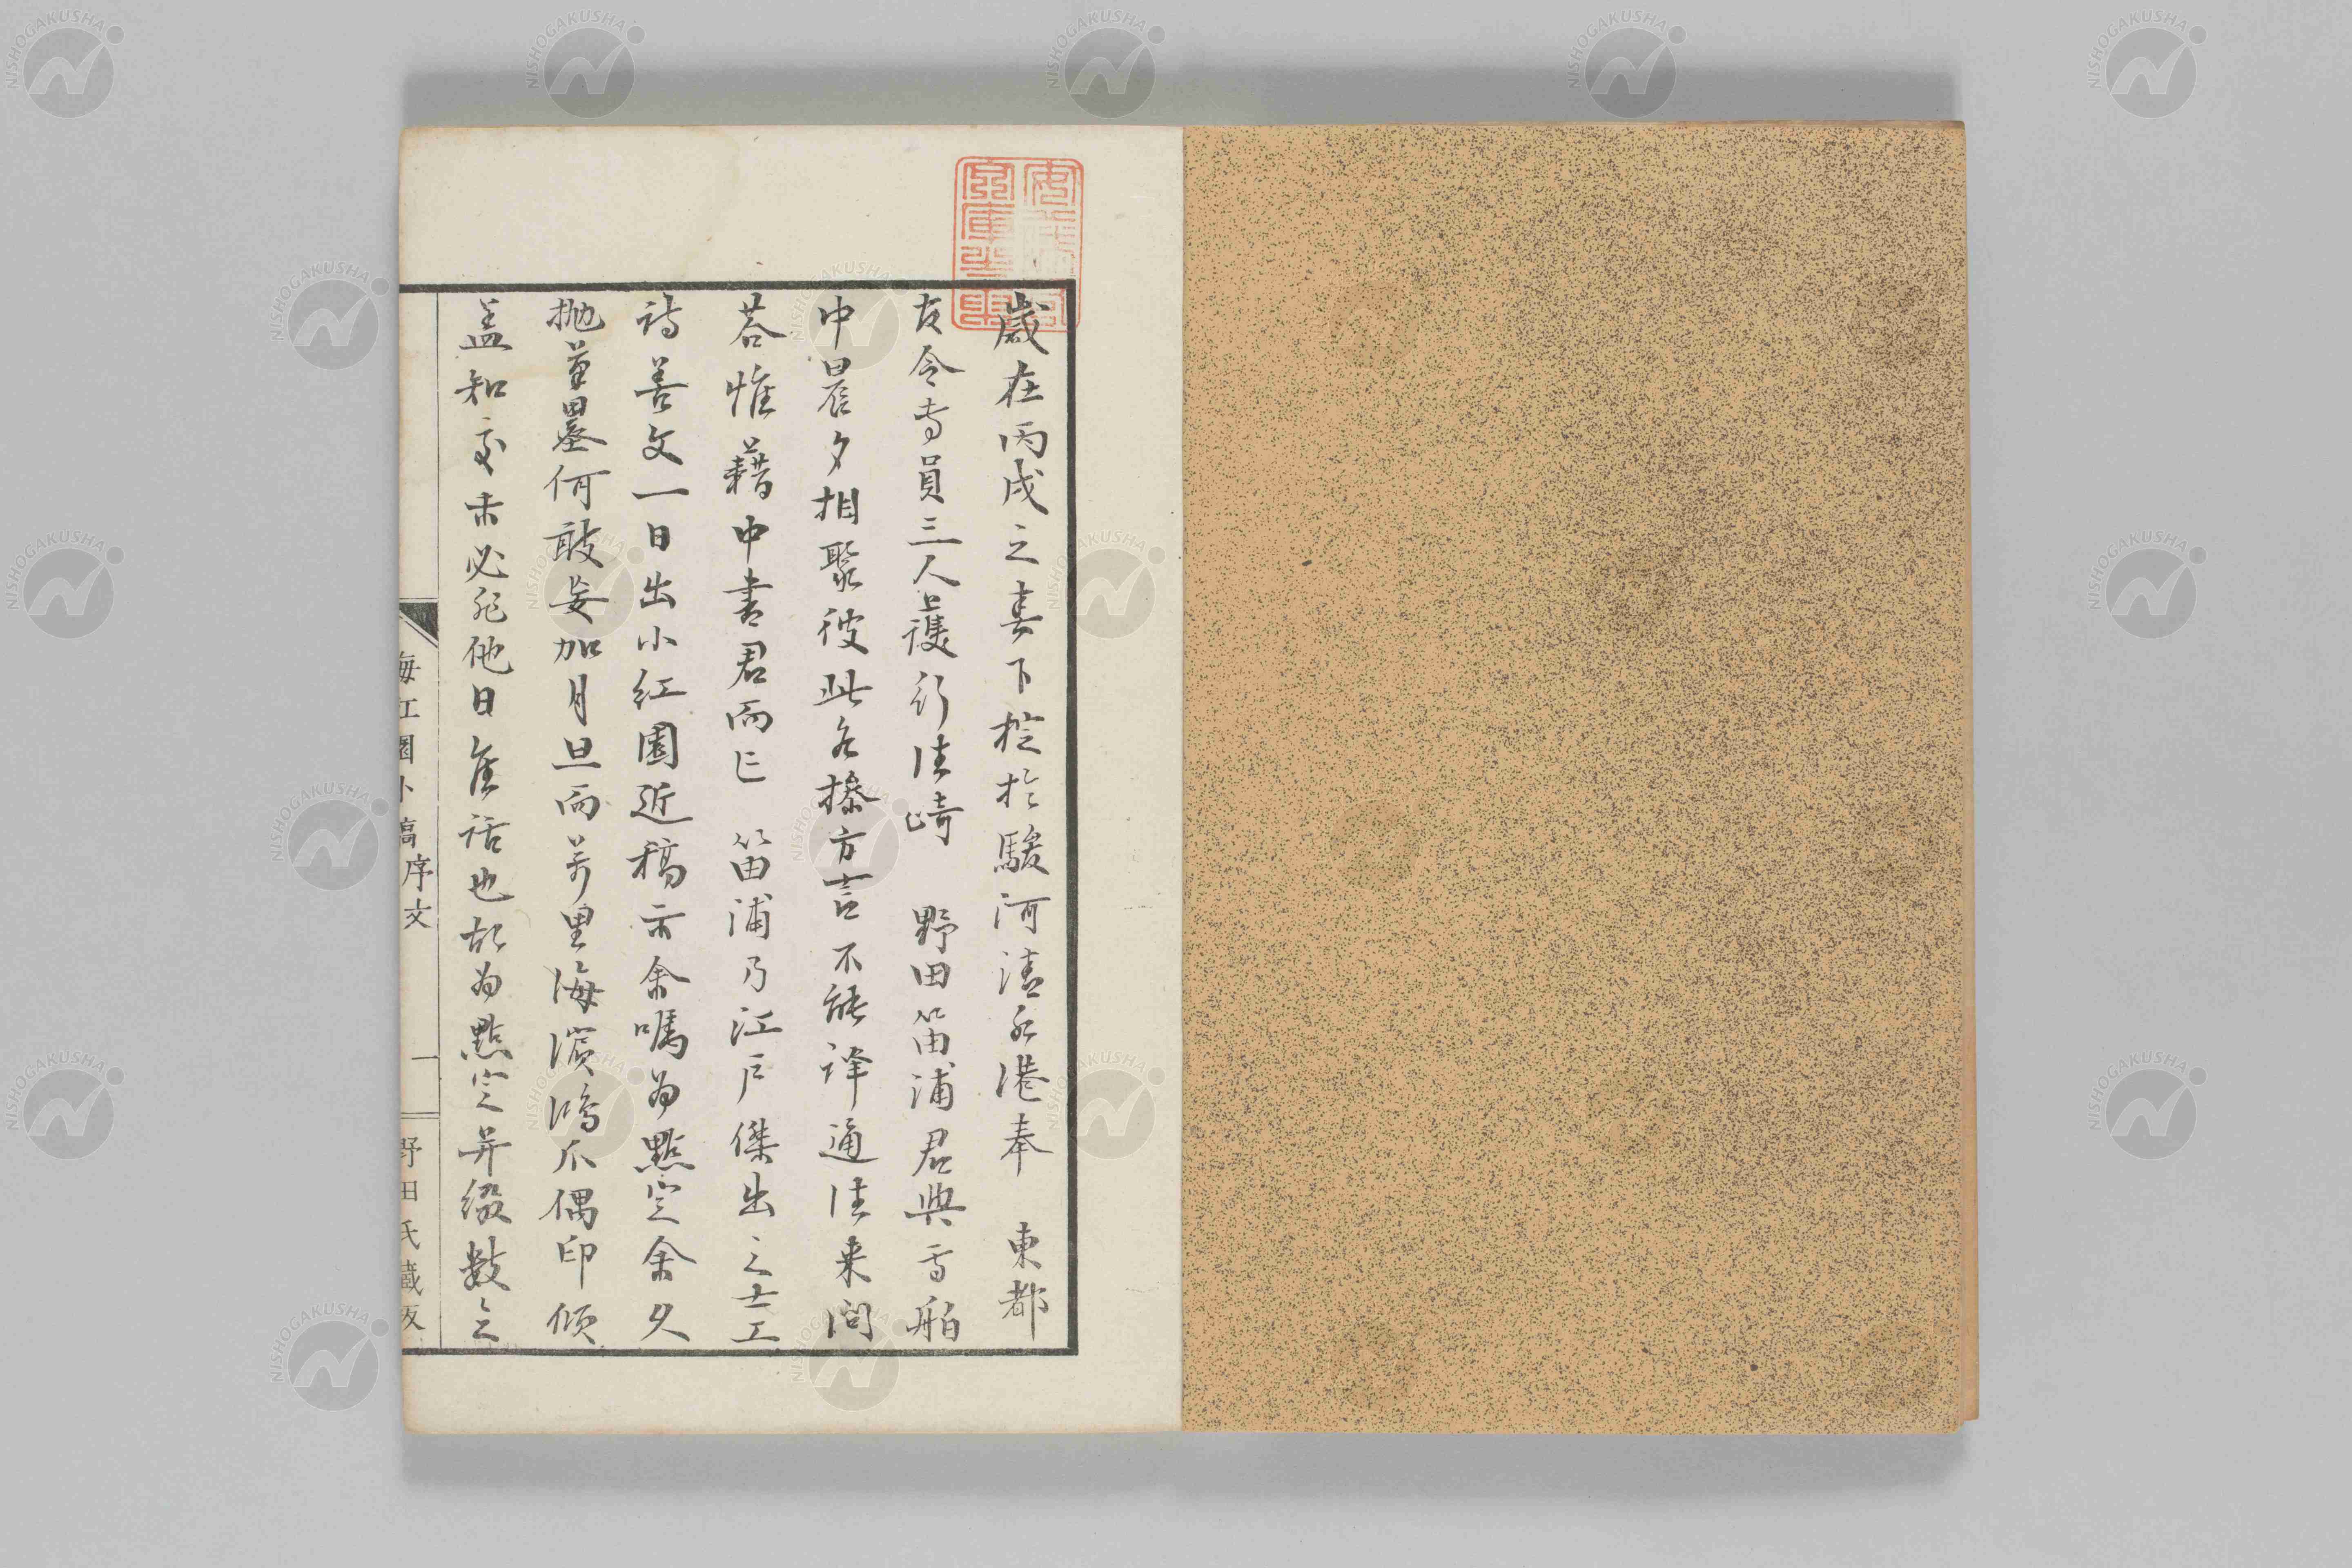 歳在丙戌之春下椗於駿河清水港奉　東都
友令専員三人護行往崎　野田笛浦君與焉船
中晨夕相聚彼此各操方言不能譯通往来問
荅惟藉中書君而已　笛浦乃江戸傑出之士工
詩善文一日出小紅園近稿示余嘱為點定余久
抛筆墨何敢妄加月旦而萬里海濱鴻爪偶印傾
盖知交未必非他日佳話也故為點定并綴數言
海紅園小稿序文　一　野田氏藏板
NISHOGAKUSHA